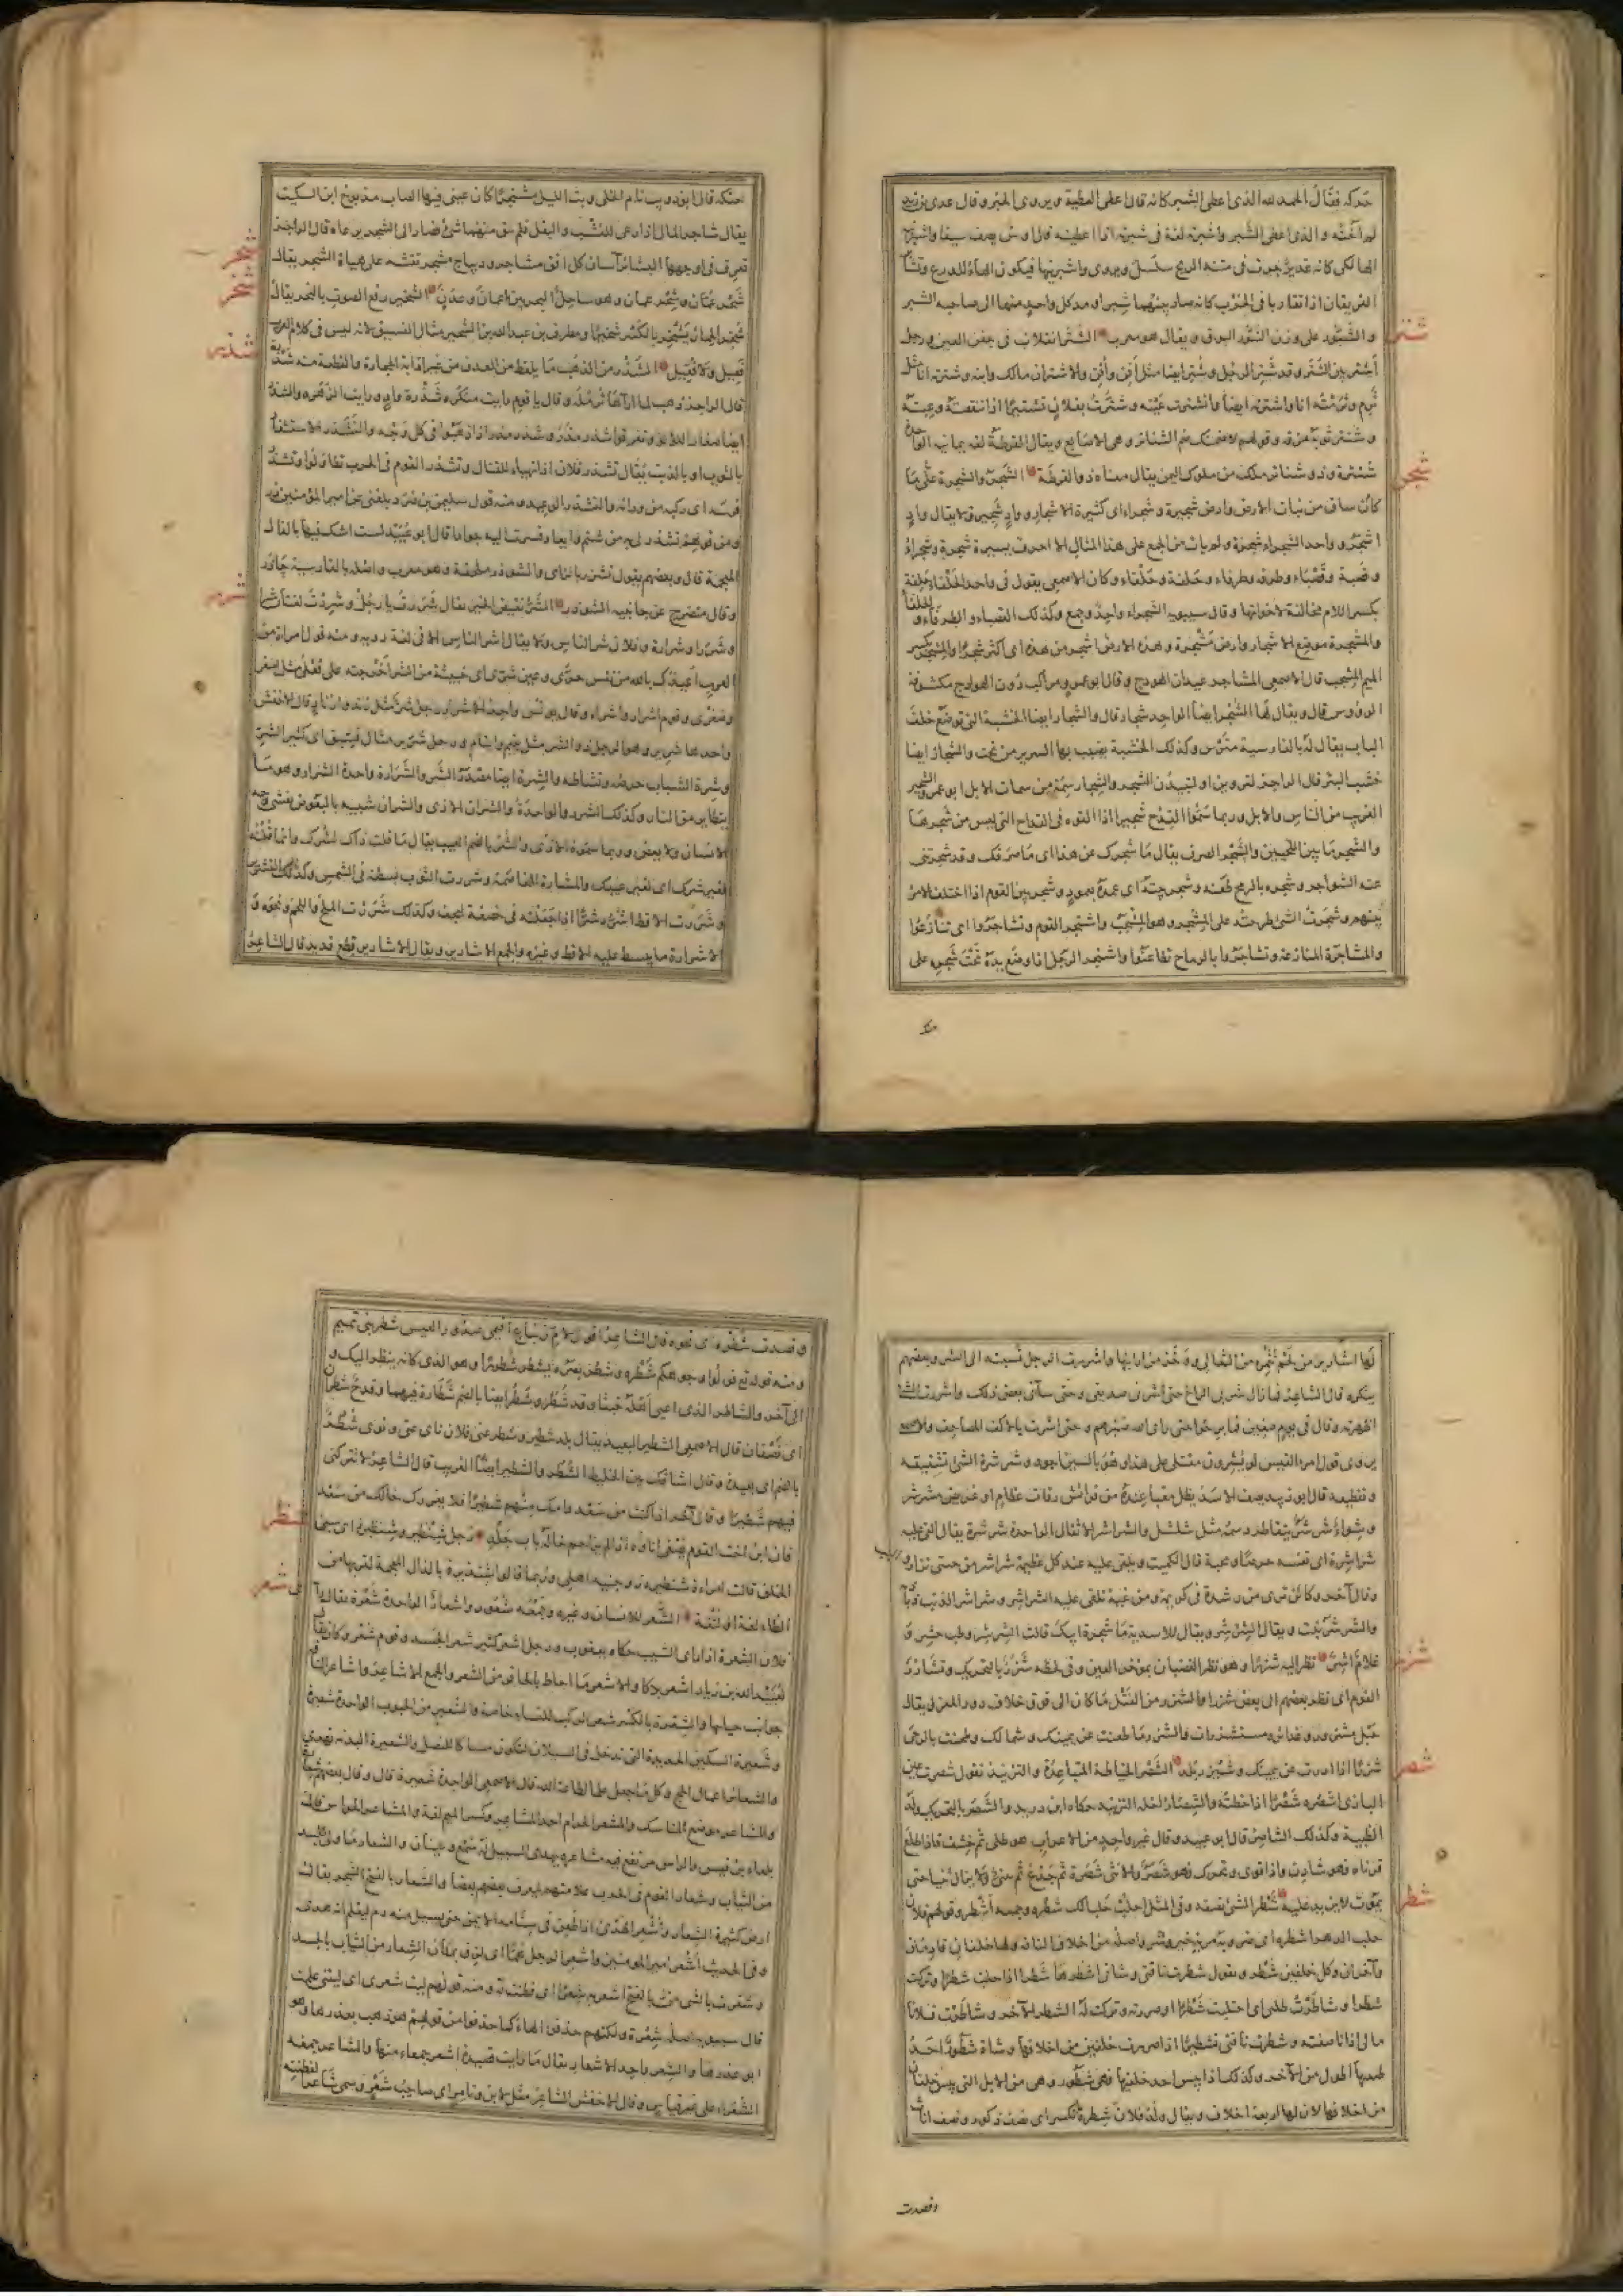 حركه فقال الحمد لله الذى اعطى الشبر كانه قال اعطى العطية ويروى الحبر وقال عدى بن زيد
لم اخنه والذى اعطى الشبر واشبرته لغة فى شبرته اذا اعطيته قال اوس يصف سيفا
الهالكى كانه غدير جرت فى متنه الريح سلسل ويروى واشبرنيها فيكون الهاء للدرع
الفريقان اذا تقاربا فى الحرب كانه صار بينهما شبر او مد كل واحد منهما الى صاحبه الشبر
والشبور على وزن التنور البوق ويقال هو معرب الشتر انقلاب فى جفن العين ورجل
شتر
اشتر بين الشتر وقد شتر الرجل وشتر ايضا مثل افن وافن والاشتران مالك وابنه وشترته انا مثل
ثرم وثرمته انا واشترته ايضا وانشترت عينه وشترت بفلان تشتيرا اذا تنقصته وعبته
وشتر ثوبه مزقه وقولهم لاضمنك ضم الشناتر وهى الاصابع ويقال القرطة لغة يمانية الواحدة
شنترة وذو شناتر ملك من ملوك اليمن يقال معناه ذو القرطة الشجر والشجرة ما
شجر
كان على ساق من نبات الارض وارض شجيرة وشجراء اى كثيرة الاشجار وواد شجير ولا يقال واد
اشجر وواحد الشجراء شجرة ولم يات من الجمع على هذا المثال الا احرف يسيرة شجرة وشجراء
وقصبة وقصباء وطرفة وطرفاء وحلفة وحلفاء وكان الاصمعى يقول فى واحد الحلفاء حلفة
بكسر اللام مخالفة لاخواتها وقال سيبويه الشجراء واحد وجمع وكذلك القصباء والطرفاء والحلفاء
والمشجرة موضع الاشجار وارض مشجرة وهذه الارض اشجر من هذه اى اكثر شجرا والمشجر بكسر
الميم المشجب قال الاصمعى المشاجر عيدان الهودج وقال ابو عمرو مراكب دون الهوادج مكشوفة
الرؤوس قال ويقال لها الشجر ايضا الواحد شجار قال والشجار ايضا الخشبة التى توضع خلف
الباب يقال له بالفارسية مترس وكذلك الخشبة يضبب بها السرير من تحت والشجار ايضا
خشب البئر قال الراجز لتروين او لتبيدن الشجر والشجار سمة من سمات الابل ابو عمرو الشجير
الغريب من الناس والابل وربما سموا القدح شجيرا اذا القوه فى القداح التى ليس من شجرها
والشجر ما بين اللحيين والشجر الصرف يقال ما شجرك عن هذا اى ما صرفك وقد شجرتنى
عنه الشواجر وشجره بالرمح طعنه وشجر بيته اى عمده بعمود وشجر بين القوم اذا اختلف الامر
بينهم وشجرت الشئ طرحته على المشجر وهو المشجب واشتجر القوم وتشاجروا اى تنازعوا
والمشاجرة المنازعة وتشاجروا بالرماح تطاعنوا واشتجر الرجل اذا وضع يده تحت شجره على
حنكه
حنكه قال ابو ذويب نام الخلى وبت الليل مشتجرا كان عينى فيها الصاب مذبوح ابن السكيت
يقال شاجر المال اذا رعى العشب والبقل فلم يبق منهما شئ فصار الى الشجر يرعاه قال الراجز
تعرف فى اوجهها البشائر آسان كل آفق مشاجر وديباج مشجر نقشه على هيئة الشجر يقال
شحر
شحر عمان وشحر عمان وهو ساحل البحر بين عمان وعدن الشخير رفع الصوت بالنخر يقال
شخر
شخر الحمار يشخر بالكسر شخيرا ومطرف بن عبد الله بن الشخير مثال الفسيق لانه ليس فى كلام العرب
فعيل ولا فعيل الشذر من الذهب ما يلقط من المعدن من غير اذابة الحجارة والقطعة منه شذرة
شذر
بالثوب او بالذنب يقال تشذر فلان اذا تهيا للقتال وتشذر القوم فى الحرب تطاولوا وتشذر
فرسه اى ركبه من ورائه والتشذر الوعيد ومنه قول سليمن بن صرد بلغنى عن امير المؤمنين
وقال منضرج عن جانبيه الشوذر الشر نقيض الخير يقال شررت يا رجل وشررت لغتان شرا
شرر
وشررا وشرارة وفلان شر الناس ولا يقال اشر الناس الا فى لغة ردية ومنه قول امراة من
العرب اعيذك بالله من نفس حرى وعين شرى اى خبيثة من الشر اخرجته على فعلى مثل اصغر
وصغرى وقوم اشرار واشراء وقال يونس واحد الاشرار رجل شر مثل زند وازناد قال الاخفش
واحدها شرير وهو الرجل ذو الشر مثل يتيم وايتام ورجل شرير مثال فسيق اى كثير الشر
وشرة الشباب حرصه ونشاطه والشرة ايضا مصدر الشر والشرارة واحدة الشرار وهو ما
يتطاير من النار وكذلك الشرر والواحدة والشران شبيه بالبعوض يغشى وجه
الانسان ولا يعض وربما سموه الاذى والشر بالضم العيب يقال ما قلت ذاك لشرك وانما قلته
لغير شرك اى لغير عيبك والمشارة المخاصمة وشررت الثوب بسطته فى الشمس وكذلك التشرير
وشررت الاقط اشره شرا اذا جعلته فى خصفة ليجف وكذلك شررت الملح واللحم ونحوه و
الاشرارة ما يبسط عليه الاقط وغيره والجمع الاشارير ويقال الاشارير قطع قديد قال الشاعر
لها اشارير من لحم تتمره من الثعالى ووخز من ارانيها واشررت الرجل نسبته الى الشر وبعضهم
ينكره قال الشاعر فما زال شربى الراح حتى اشرنى صديقى وحتى سآنى بعض ذلك واشررت الشئ
اظهرته وقال فى يوم صفين فما برحوا حتى راى الله صبرهم وحتى اشرت بالاكف المصاحف
يروى قول امرء القيس لو يشرون مقتلى على هذا وهو بالسين اجود وشرشرة الشئ تشقيقه
وتقطيعه قال ابو زبيد يصف الاسد يظل مغبا عنده من فرائس رفات عظام او غريض مشرشر
وشواء شرشر يتقاطر دسمه مثل شلشل والشراشر الاثقال الواحدة شرشرة يقال القى عليه
شراشره اى نفسه حرصا ومحبة قال الكميت ويلقى عليه عند كل عظيمة شراشر من حيى نزار
وقال آخر وكائن ترى من رشدة فى كريهة ومن غية تلقى عليه الشراشر وشراشر الذنب ذباذبه
والشرشر نبت ويقال الشرشر ويقال للاسدية ما شجرة ابيك قالت الشرشر
شزر
نظر اليه شزرا وهو نظر الغضبان بموخر العين وفى لحظه شزر بالتحريك وتشازر
القوم اى نظر بعضهم الى بعض شزرا والشزر من الفتل ما كان الى فوق خلاف دور المغزل يقال
حبل مشزور وغدائر مستشزرات والشزر ما طعنت عن يمينك وشمالك وطحنت بالرحى
شزرا اذا ادرت عن يمينك الشصر الخياطة المتباعدة والتزنيد تقول شصرت عين
شصر
البازى اشصره شصرا اذا خطته والشصار اخلة التزنيد حكاه ابن دريد والشصر بالتحريك ولد
الظبية وكذلك الشاصر قال ابو عبيد وقال غير واحد من الاعراب هو طلى ثم خشف فاذا طلع
قرناه فهو شادن واذا قوى وتحرك فهو شصر والانثى شصرة ثم جذع ثم ثنى ولا يزال ثنيا حتى
يموت لا يزيد عليه شطر الشئ نصفه وفى المثل احلب حلبا لك شطره وجمعه اشطر وقولهم فلان
شطر
حلب الدهر اشطره اى ضروبه مر به خير وشر واصله من اخلاف الناقة ولها خلفان قادمان
وآخران وكل خلفين شطر وتقول شطرت ناقتى وشاتى اشطرها شطرا اذا حلبت شطرا وتركت
شطرا وشاطرت طلىى اى احتلبت شطرا او صررته وتركت له الشطر الآخر وشاطرت فلانا
مالى اذا ناصفته وشطرت ناقتى تشطيرا اذا صررت خلفين من اخلافها وشاة شطور احد
طبييها اطول من الآخر وكذلك اذا يبس احد خلفيها فهى شطور وهى من الابل التى يبس خلفان
من اخلافها لان لها اربعة اخلاف ويقال ولد فلان شطرة بالكسر اى نصف ذكور ونصف اناث
وقصدت
وقصدت شطره اى نحوه قال الشاعر اقول لام زنباع اقيمى صدور العيس شطر بنى تميم
ومنه قوله تع فولوا وجوهكم شطره وشطر بصره يشطر شطورا وهو الذى كانه ينظر اليك و
الى آخر والشاطر الذى اعيى اهله خبثا وقد شطر وشطر ايضا بالضم شطارة فيهما وقدح شطران
اى نصفان قال الاصمعى الشطير البعيد يقال بلد شطير وشطر عنى فلان ناى عنى ونوى شطر
بالضم اى بعيدة وقال اشاقك بين الخليط الشطر والشطير ايضا الغريب قال الشاعر لا تتركنى
فيهم شطيرا وقال آخر اذا كنت من سعد وامك منهم شطيرا فلا يغررك خالك من سعد
فان ابن اخت القوم مصغى اناؤه اذا لم يزاحم خاله باب جلد رجل شنظير وشنظيرة اى سيئ
شظر
الخلق قالت امراة شنظيرة زوجنيه اهلى وربما قالوا شنذيرة بالذال المعجمة لقربها من
الظاء لغة او لثغة الشعر للانسان وغيره وجمعه شعور واشعار الواحدة شعرة يقال راى
شعر
فلان الشعرة اذا راى الشيب حكاه يعقوب ورجل اشعر كثير شعر الجسد وقوم شعر وكان يقال
لعبيد الله بن زياد اشعر بركا والاشعر ما احاط بالحافر من الشعر والجمع الاشاعر
جوانب حيائها والشعرة بالكسر شعر الركب للنساء خاصة والشعير من الحبوب الواحدة شعيرة
وشعيرة السكين الحديدة التى تدخل فى السيلان لتكون مساكا للنصل والشعيرة البدنة تهدى
والشعائر اعمال الحج وكل ما جعل علما لطاعة الله قال الاصمعى الواحدة شعيرة قال وقال بعضهم شعارة
والمشاعر موضع المناسك والمشعر الحرام احد المشاعر وكسر الميم لغة والمشاعر الحواس
من الثياب وشعار القوم فى الحرب علامتهم ليعرف بعضهم بعضا والشعار بالفتح الشجر يقال
ارض كثيرة الشعار واشعر الهدى اذا طعن فى سنامه الايمن حتى يسيل منه دم ليعلم انه هدى
وفى الحديث اشعر امير المومنين واشعر الرجل هما اى لزق بمكان الشعار من الثياب بالجسد
وشعرت بالشئ بالفتح اشعر به شعرا اى فطنت له ومنه قولهم ليت شعرى اى ليتنى علمت
قال سيبويه اصله شعرة ولكنهم حذفوا الهاء كما حذفوا من قولهم ذهب بعذرها وهو
ابو عذرها والشعر واحد الاشعار يقال ما رايت قصيدة اشعر جمعاء منها والشاعر جمعه
الشعراء على غير قياس وقال الاخفش الشاعر مثل لابن وتامر اى صاحب شعر وسمى شاعرا لفطنته